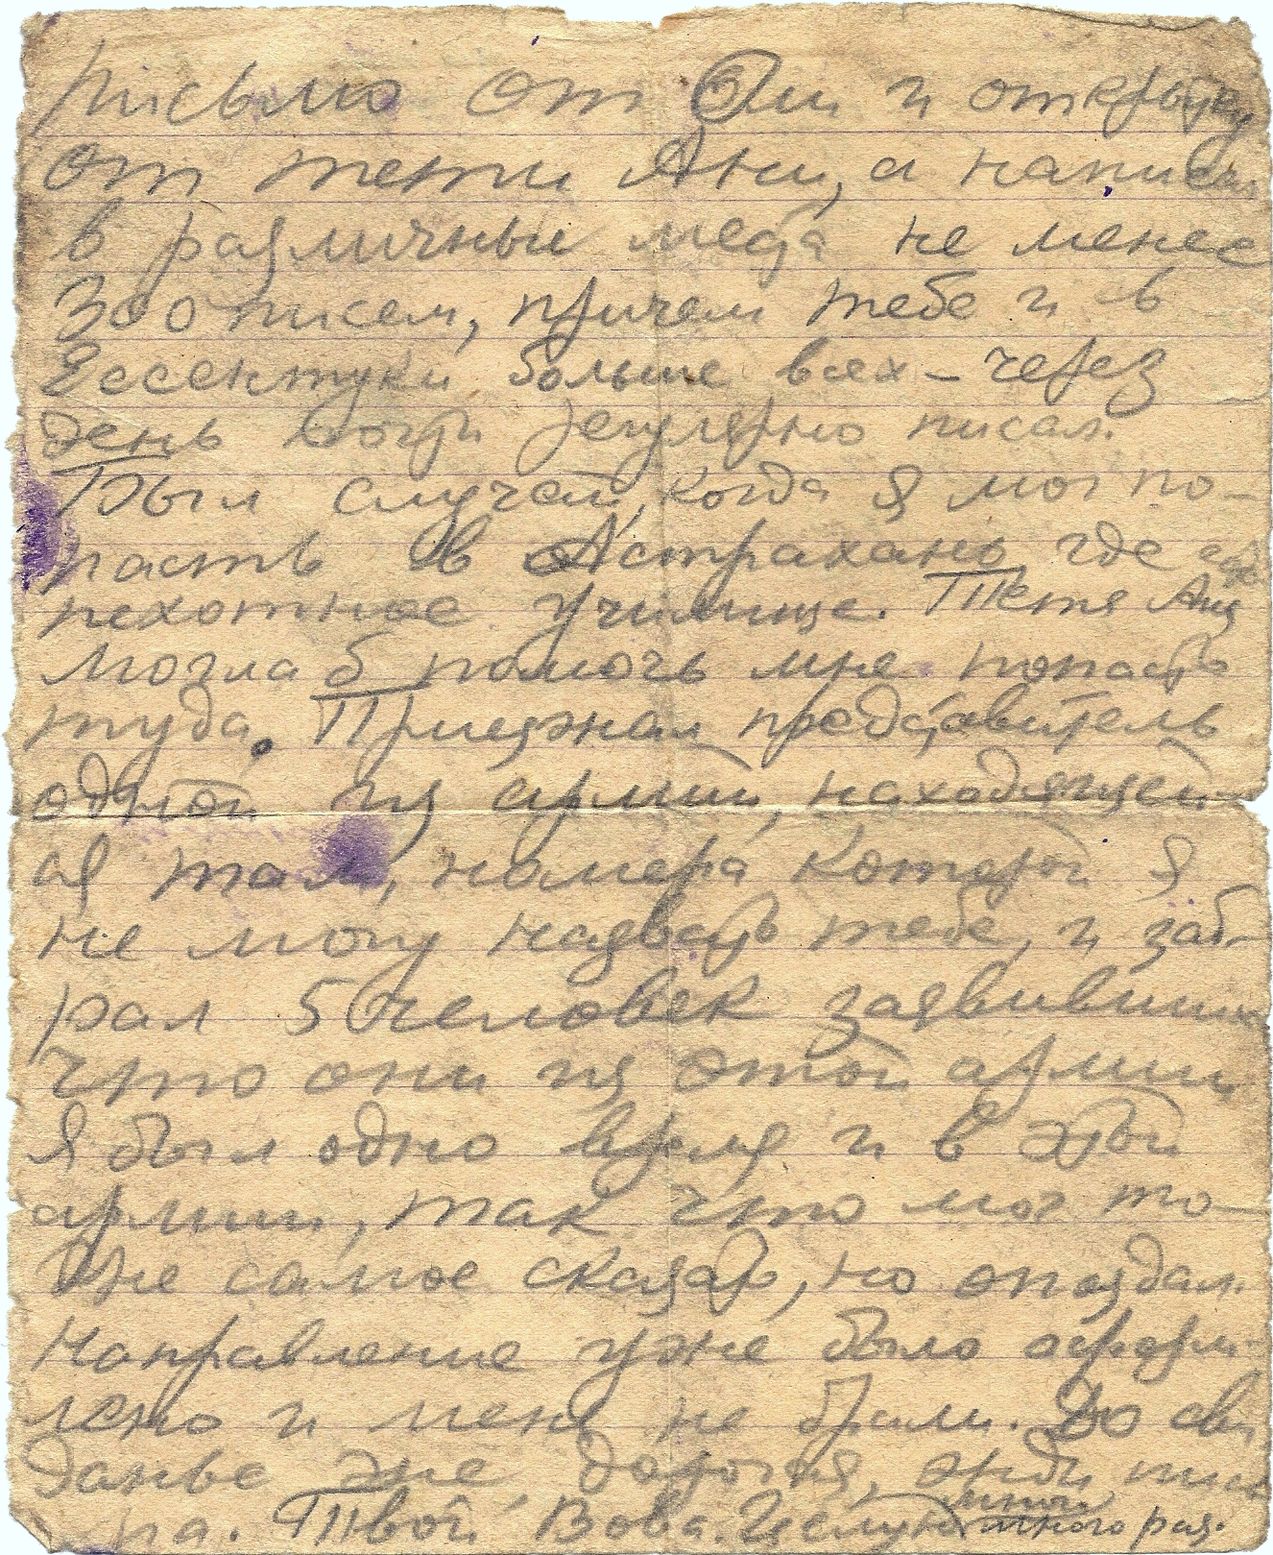 письмо от Оли и открытку
от тети Ани, а написал
в различные места не менее
300 писем, причем тебе и в
Ессентуки больше всех – через
день почти регулярно писал.
Был случай, когда я мог по-
пасть в Астрахань, где есть
пехотное училище. Тетя Аня
могла б помочь мне попасть
туда. Приезжал представитель
одной из армий, находящей-
ся там, номера которой я
не могу назвать тебе, и заб-
рал 50 человек заявивших
что они из этой армии
Я был одно время и в этой
армии, так что мог то-
же самое сказать, но опоздал.
Направление уже было оформ-
лено и меня не брали. До сви
данье же, дорогая, жди пись
ма. Твой Вова. Целую
много раз.